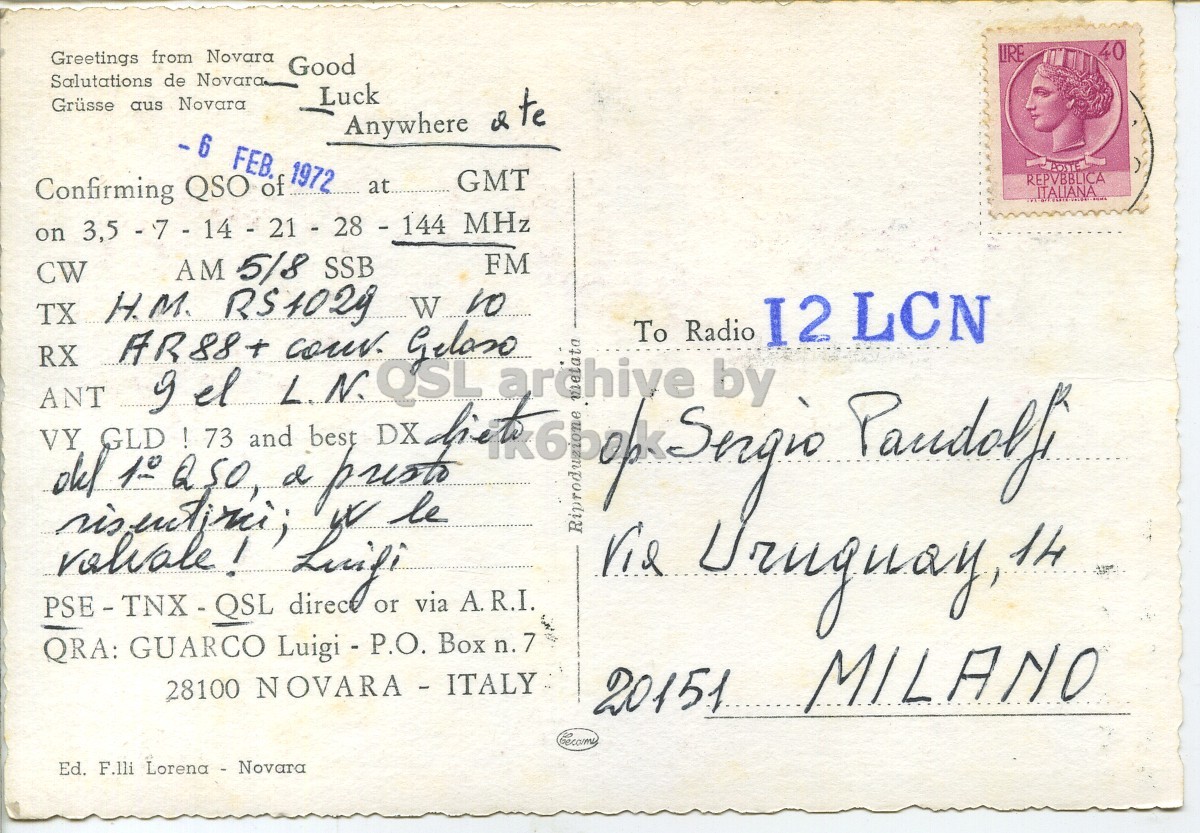 Greetings from Novara
Salutations de Novara
Grüsse aus Novara
Good
Luck
Anywhere a te
- 6 FEB. 1972
Confirming QSO of at GMT
on 3,5 - 7 - 14 - 21 - 28 - 144 MHz
CW AM 5/8 SSB FM
TX H.M. RS1029 W 10
RX AR88 + conv. Geloso
ANT 9 el L.N.
VY GLD ! 73 and best DX lieto
del 1º QSO, a presto
risentirci; W le
valvole! Luigi
PSE - TNX - QSL direct or via A.R.I.
QRA: GUARCO Luigi - P.O. Box n. 7
28100 NOVARA - ITALY
Ed. F.lli Lorena - Novara
Riproduzione vietata
Cecami
LIRE 40
POSTE
REPVBBLICA
ITALIANA
To Radio I2LCN
op. Sergio Pandolfi
Via Uruguay, 14
20151 MILANO
QSL archive by
ik6bak